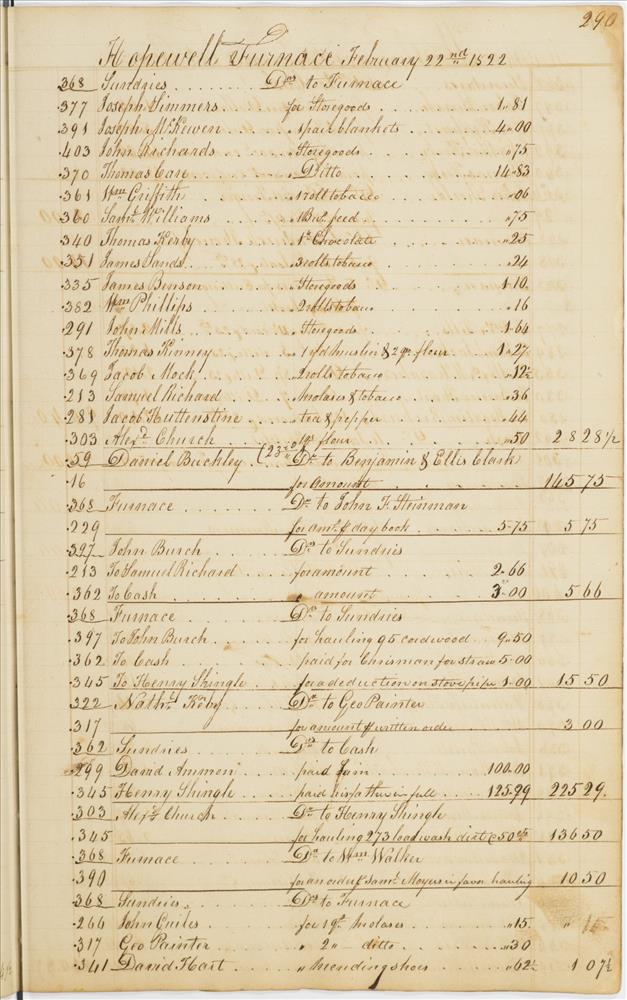 290
Hopewell Furnace February 22nd 1822
368 Sundries . . . . . . . Drs to Furnace
377 Joseph Simmers . . . . for Storegoods . . . . . . . 1"81
391 Joseph McKewen . . . . " 1 pair blankets . . . . . 4"00
403 John Richards . . . . . " Storegoods . . . . . . "75
370 Thomas Care . . . . . " Ditto . . . . . . 14"83
361 Wm Griffith . . . . . " 1 roll tobacco . . . . . "06
360 Saml Williams . . . . " 1 Bul feed . . . . . . "75
340 Thomas Kerby . . . . . " Chocolate . . . . . "25
351 James Sands . . . . . " 3 rolls tobacco . . . . "24
335 James Benson . . . . . " Storegoods . . . . . 1"10
382 Wm Phillips . . . . . " 2 rolls tobacco . . . . "16
291 John Mills . . . . . " Storegoods . . . . . 1"64
378 Thomas Kinney . . . . " 1 yd muslin & 2 qr flour . . 1"27
369 Jacob Mock . . . . . " 2 rolls tobacco . . . . "12½
213 Samuel Richard . . . . " Molases & tobacco . . . "36
281 Jacob Huttenstine . . . " tea & pepper . . . . "44
303 Alexd Church . . . . . " qr flour . . . . . "50 28 28½
59 Daniel Buckley . (23rd) Dr to Benjamin & Ellis Clark
16 for amount 145 75
368 Furnace . . . . . . . Dr to John F. Steinman
229 for amt daybook . . . . . 5"75 5 75
327 John Burch . . . . . Dr to Sundries
213 To Samuel Richard . . . for amount . . . . . 2"66
362 To Cash . . . . . " amount . . . . . 3"00 5 66
368 Furnace . . . . . . Dr to Sundries
397 To John Burch . . . . . for hauling 95 cordwood 9"50
362 To Cash . . . . . . . paid for Chrisman for straw 5"00
345 To Henry Shingle . . . for a deduction on stove pipe 1"00 15 50
322 Nathl Koby . . . . . Dr to Geo Painter
317 for amount written order 3 00
362 Sundries . . . . . Drs to Cash
299 David Ammon . . . . . paid him . . . . . 100"00
345 Henry Shingle . . . . paid his father in full . . . 125"29 225 29
303 Alexd Church . . . . Dr to Henry Shingle
345 for hauling 273 load wash dirt @ 50cts 136 50
368 Furnace . . . . . . Dr to Wm Walker
390 for an order Saml Moyers in favor hauling 10 50
368 Sundries . . . . . . Drs to Furnace
266 John Guiles . . . . . for 1 qt Molases . . . . "15
317 Geo Painter . . . . . " 2 " ditto . . . . . "30
341 David Hart . . . . . " Mending shoes . . . . "62½ 1 07½